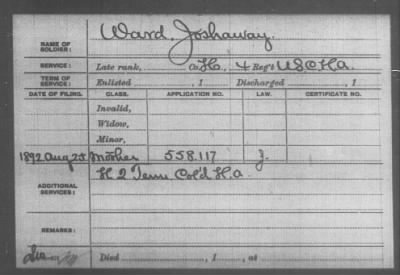 NAME OF SOLDIER: Ward, Joshaway.
SERVICE: Late rank, Co. H. 4 Reg't U S C H a.
TERM OF SERVICE: Enlisted , 1 Discharged , 1
DATE OF FILING. CLASS. APPLICATION NO. LAW. CERTIFICATE NO.
Invalid,
Widow,
Minor,
1892 Aug 25 Mother 558.117 J.
ADDITIONAL SERVICES: H 2 Tenn Col'd H. a
REMARKS:
Died , 1 , at